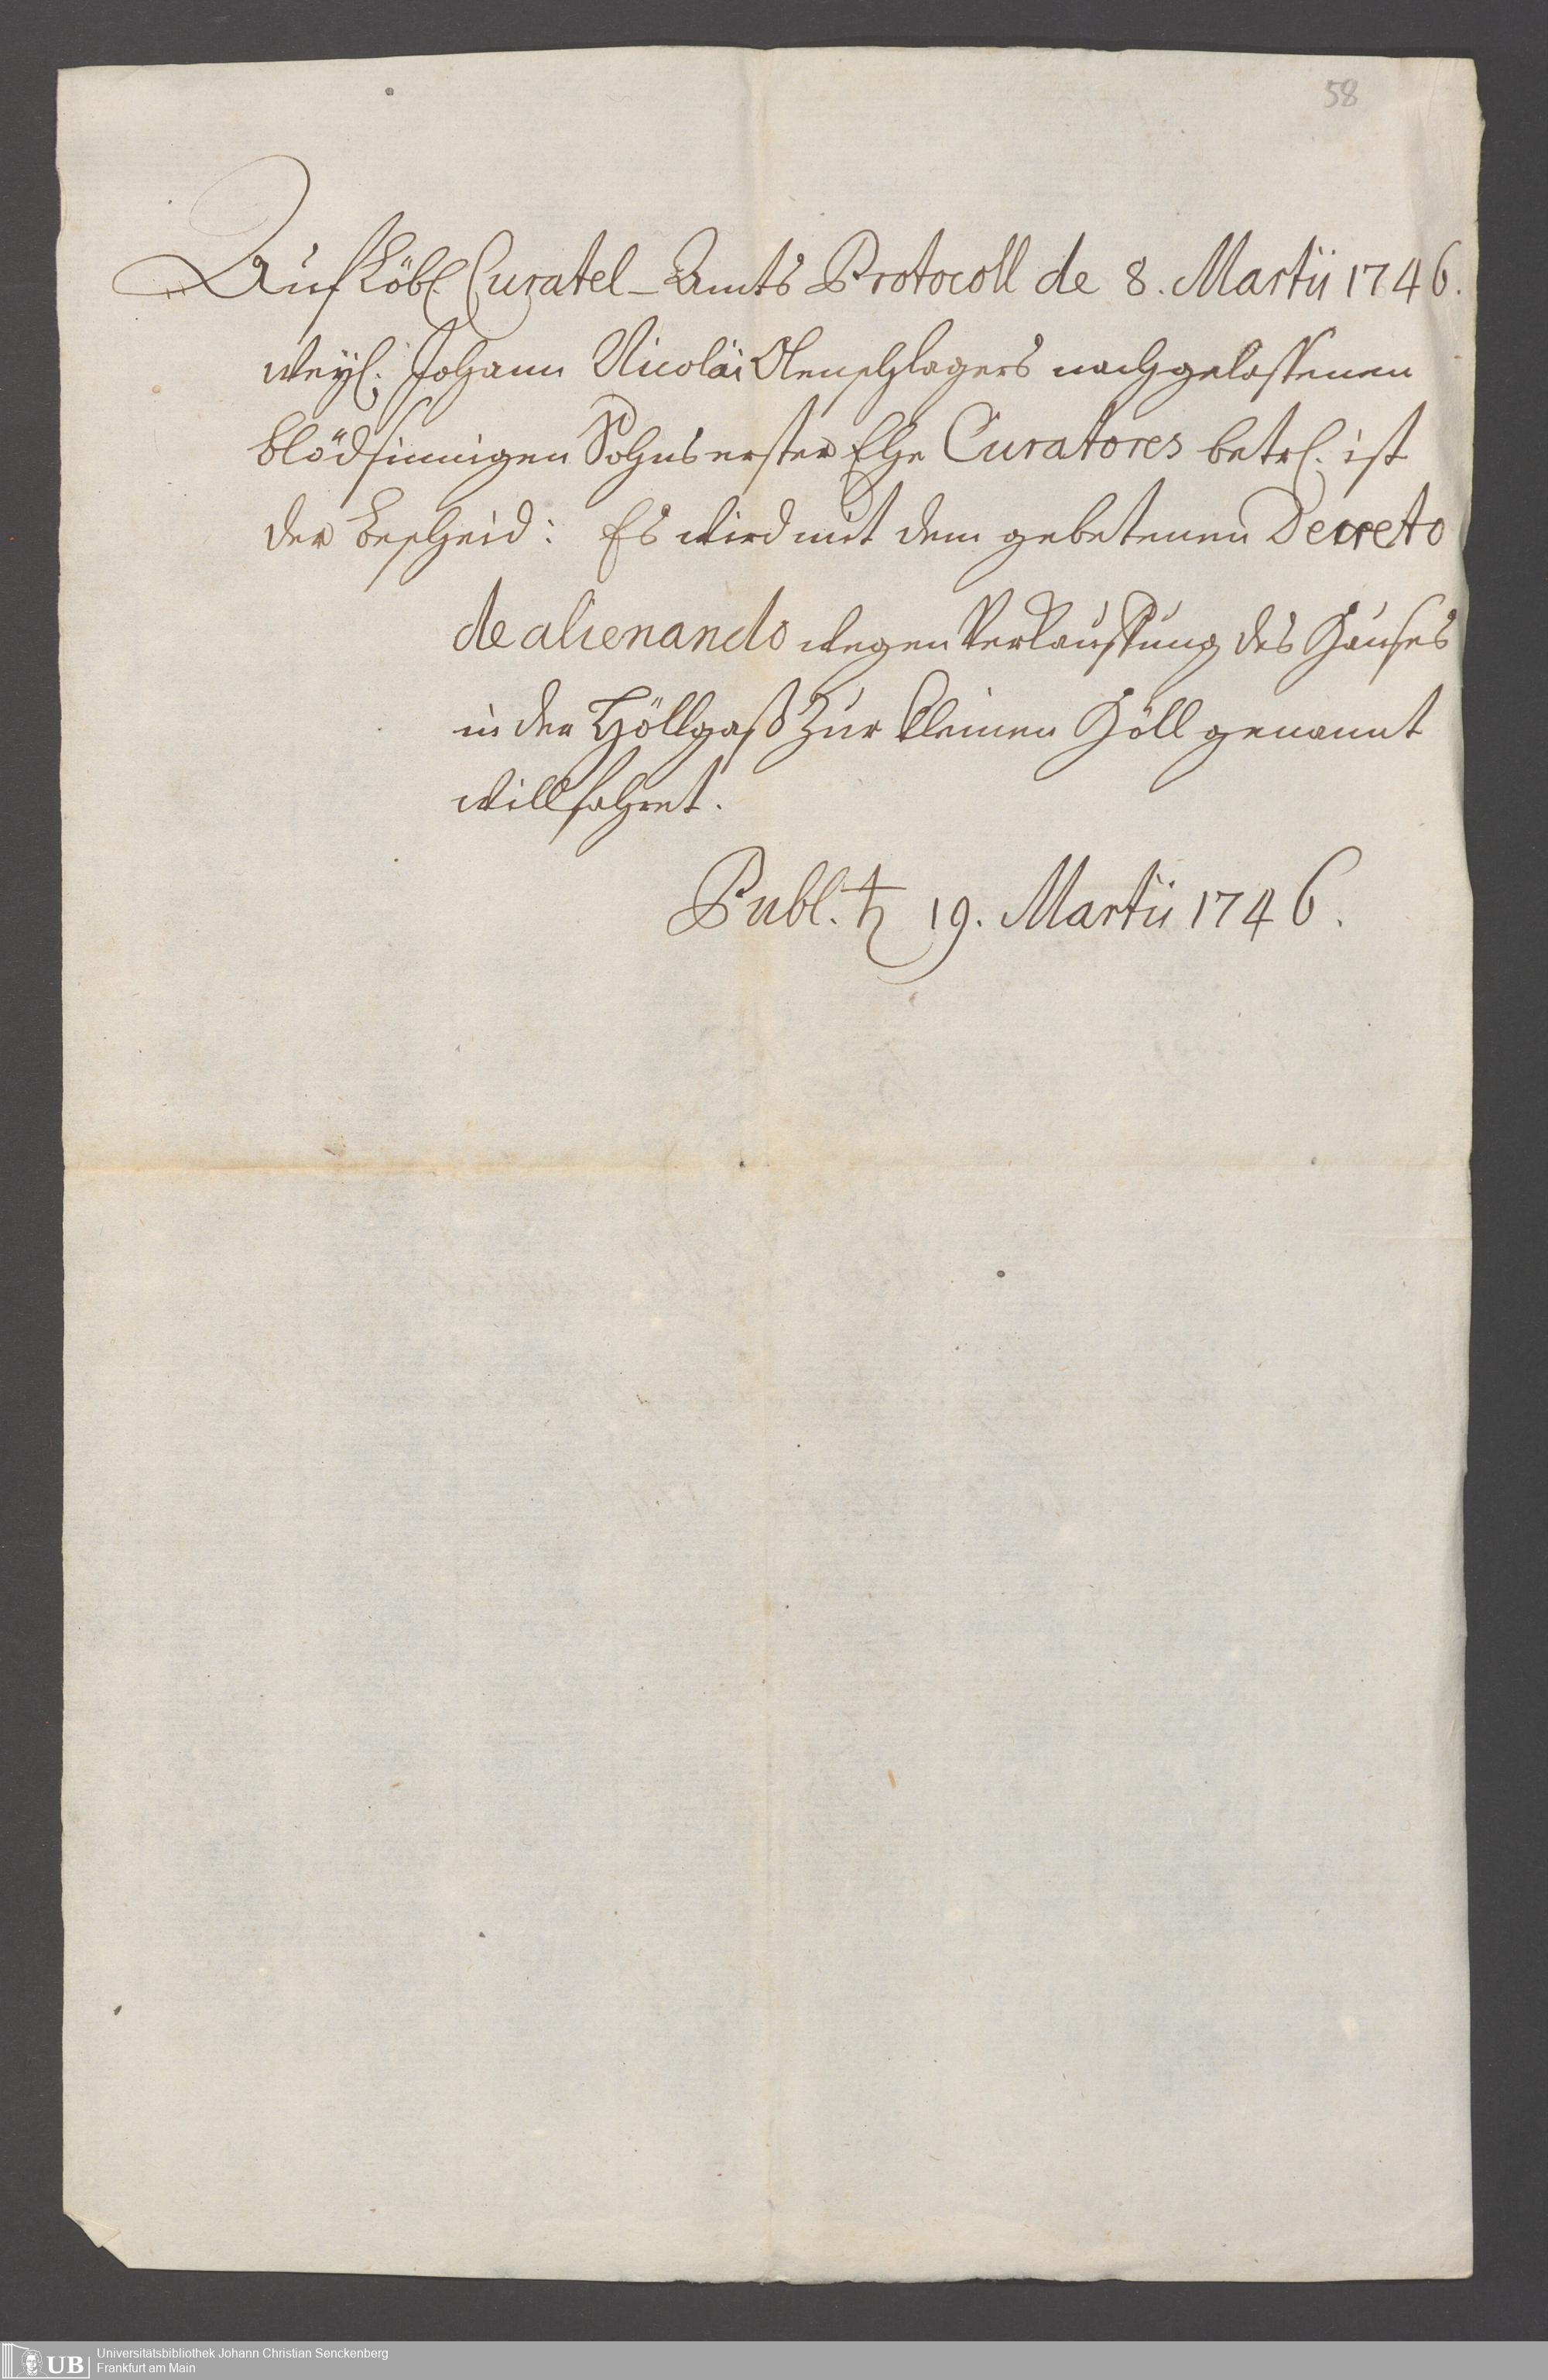 58
Auf Löbl. Curatel-Amts Protocoll de 8. Martii 1746.
weyl. Johann Nicolai Olenschlagers nachgelassenen
blödsinnigen Sohns erster Ehe Curatores betrl. ist
der Bescheid: Es wird mit dem gebetenen Decreto
de alienando wegen Verkauffung des Hauses
in der Höllgaß zur kleinen Höll genannt
willfahret.
Publ. ♄ 19. Martii 1746.
UB Universitätsbibliothek Johann Christian Senckenberg
Frankfurt am Main